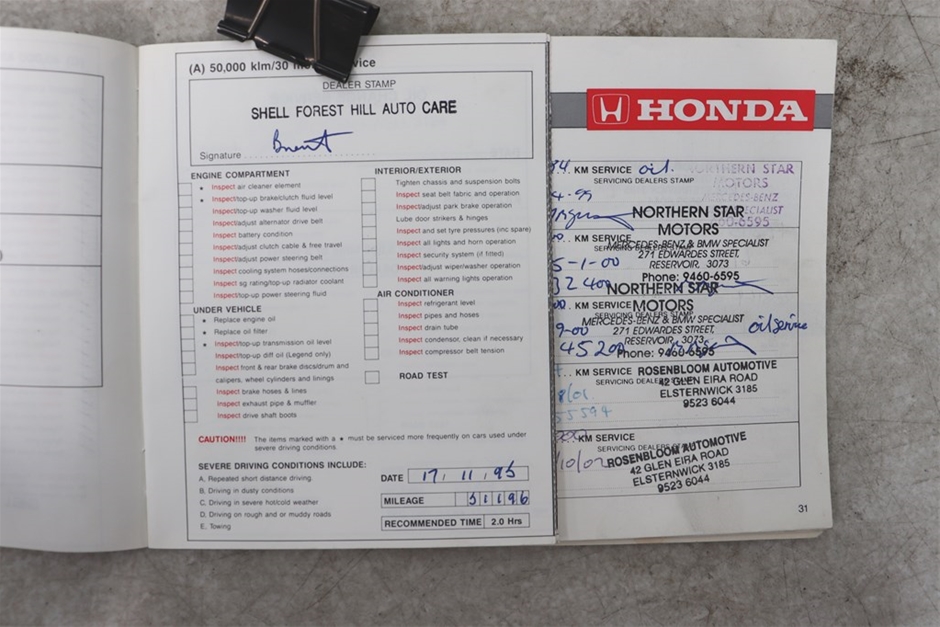 (A) 50,000 klm/30 vice
DEALER STAMP
SHELL FOREST HILL AUTO CARE
Signature
ENGINE COMPARTMENT
★ Inspect air cleaner element
★ Inspect/top-up brake/clutch fluid level
Inspect/top-up washer fluid level
Inspect/adjust alternator drive belt
Inspect battery condition
Inspect/adjust clutch cable & free travel
Inspect/adjust power steering belt
Inspect cooling system hoses/connections
Inspect sg rating/top-up radiator coolant
Inspect/top-up power steering fluid
UNDER VEHICLE
★ Replace engine oil
★ Replace oil filter
★ Inspect/top-up transmission oil level
Inspect/top-up diff oil (Legend only)
Inspect front & rear brake discs/drum and
calipers, wheel cylinders and linings
Inspect brake hoses & lines
Inspect exhaust pipe & muffler
Inspect drive shaft boots
INTERIOR/EXTERIOR
Tighten chassis and suspension bolts
Inspect seat belt fabric and operation
Inspect/adjust park brake operation
Lube door strikers & hinges
Inspect and set tyre pressures (inc spare)
Inspect all lights and horn operation
Inspect security system (if fitted)
Inspect/adjust wiper/washer operation
Inspect all warning lights operation
AIR CONDITIONER
Inspect refrigerant level
Inspect pipes and hoses
Inspect drain tube
Inspect condensor, clean if necessary
Inspect compressor belt tension
ROAD TEST
CAUTION!!!! The items marked with a ★ must be serviced more frequently on cars used under
severe driving conditions.
SEVERE DRIVING CONDITIONS INCLUDE:
A. Repeated short distance driving
B. Driving in dusty conditions
C. Driving in severe hot/cold weather
D. Driving on rough or muddy roads
E. Towing
DATE 17. 11. 95
MILEAGE 51196
RECOMMENDED TIME 2.0 Hrs
HONDA
KM SERVICE oil.
SERVICING DEALERS STAMP
NORTHERN STAR
MOTORS
MERCEDES-BENZ
SPECIALIST
9460-6595
4-99
NORTHERN STAR
MOTORS
KM SERVICE
MERCEDES-BENZ & BMW SPECIALIST
271 EDWARDES STREET,
RESERVOIR, 3073
Phone: 9460-6595
5-1-00
NORTHERN STAR
MOTORS
KM SERVICE
MERCEDES-BENZ & BMW SPECIALIST
271 EDWARDES STREET,
RESERVOIR, 3073
Phone: 9460-6595
9-00
45200
oil service
KM SERVICE
SERVICING DEALERS
ROSENBLOOM AUTOMOTIVE
42 GLEN EIRA ROAD
ELSTERNWICK 3185
9523 6044
KM SERVICE
SERVICING DEALERS
ROSENBLOOM AUTOMOTIVE
42 GLEN EIRA ROAD
ELSTERNWICK 3185
9523 6044
31